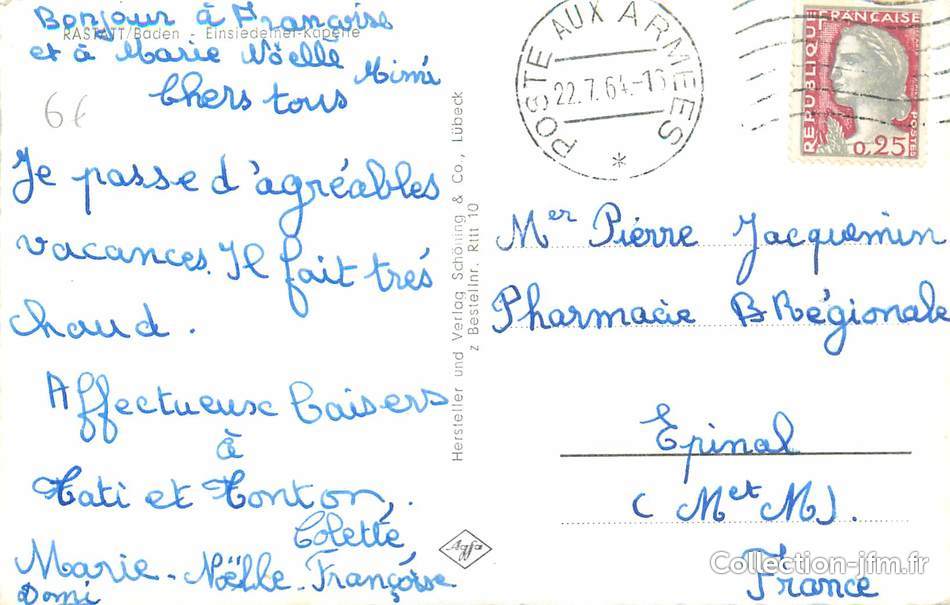 Bonjour à Françoise
RASTATT/Baden - Einsiedelner-Kapelle
et à Marie Nöëlle
Mimi
Chers tous
6€
Je passe d'agréables
vacances. Il fait très
chaud.
Affectueux baisers
à
Tati et Tonton,
Colette
Marie-Nöëlle-Françoise
Domi
Hersteller und Verlag Schöning & Co., Lübeck
z Bestellnr. Rttt 10
Agfa
POSTE AUX ARMEES
22.7.64-16
*
REPUBLIQUE FRANÇAISE
POSTES
0,25
Mer Pierre Jacquemin
Pharmacie B Régionale
Epinal
(M et M).
France
Collection-jfm.fr